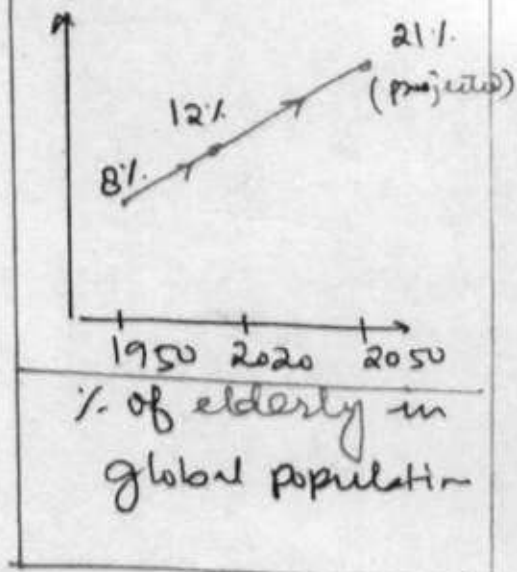 21%
(projected)
12%
8%
1950 2020 2050
% of elderly in
global population